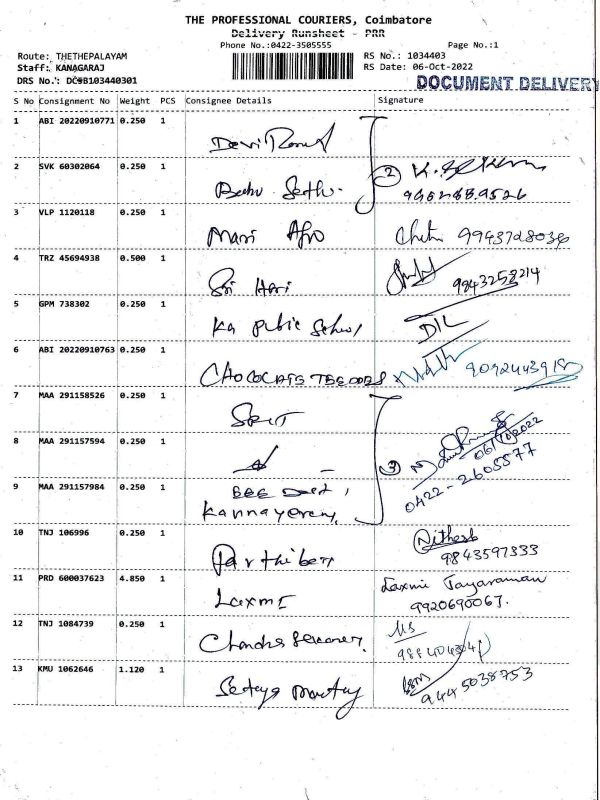 THE PROFESSIONAL COURIERS, Coimbatore
Delivery Runsheet - PRR
Phone No.:0422-3505555 Page No.:1
Route: THETHEPALAYAM RS No.: 1034403
Staff: KANAGARAJ RS Date: 06-Oct-2022
DRS No.: DCSB103440301 DOCUMENT DELIVERY
S No Consignment No Weight PCS Consignee Details Signature
1 ABI 20220910771 0.250 1
2 SVK 60302064 0.250 1 2
3 VLP 1120118 0.250 1 Mani Afro 9943728036
4 TRZ 45694938 0.500 1 Sri Hari 9843258214
5 GPM 738302 0.250 1 Ka Public School
6 ABI 20220910763 0.250 1 9092443918
7 MAA 291158526 0.250 1
8 MAA 291157594 0.250 1 3 06/10/2022
0422-2605577
9 MAA 291157984 0.250 1
10 TNJ 106996 0.250 1 Parthiban Nithesh
9843597333
11 PRD 600037623 4.850 1 Laxmi Laxmi Jayaraman
9920690067.
12 TNJ 1084739 0.250 1 Chandra Sekaran
13 KMU 1062646 1.120 1 9445038753